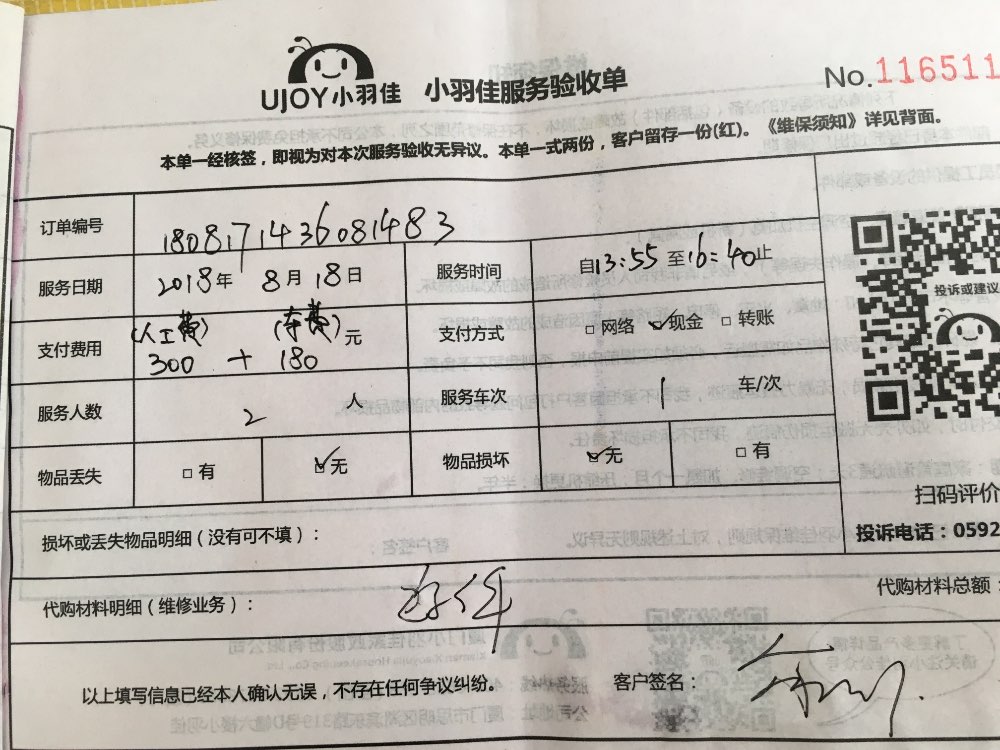 UJOY小羽佳 小羽佳服务验收单
No.116511
本单一经核签，即视为对本次服务验收无异议。本单一式两份，客户留存一份(红)。《维保须知》详见背面。
订单编号 1808171436081483
服务日期 2018年 8月18日 服务时间 自13:55至16:40止
支付费用 (人工费) (车费)元 支付方式 □网络 ☑现金 □转账
300 + 180
服务人数 2 人 服务车次 1 车/次
物品丢失 □有 ☑无 物品损坏 ☑无 □有
投诉或建议
扫码评价
投诉电话：0592
损坏或丢失物品明细（没有可不填）：
代购材料明细（维修业务）： 代购材料总额：
以上填写信息已经本人确认无误，不存在任何争议纠纷。 客户签名：